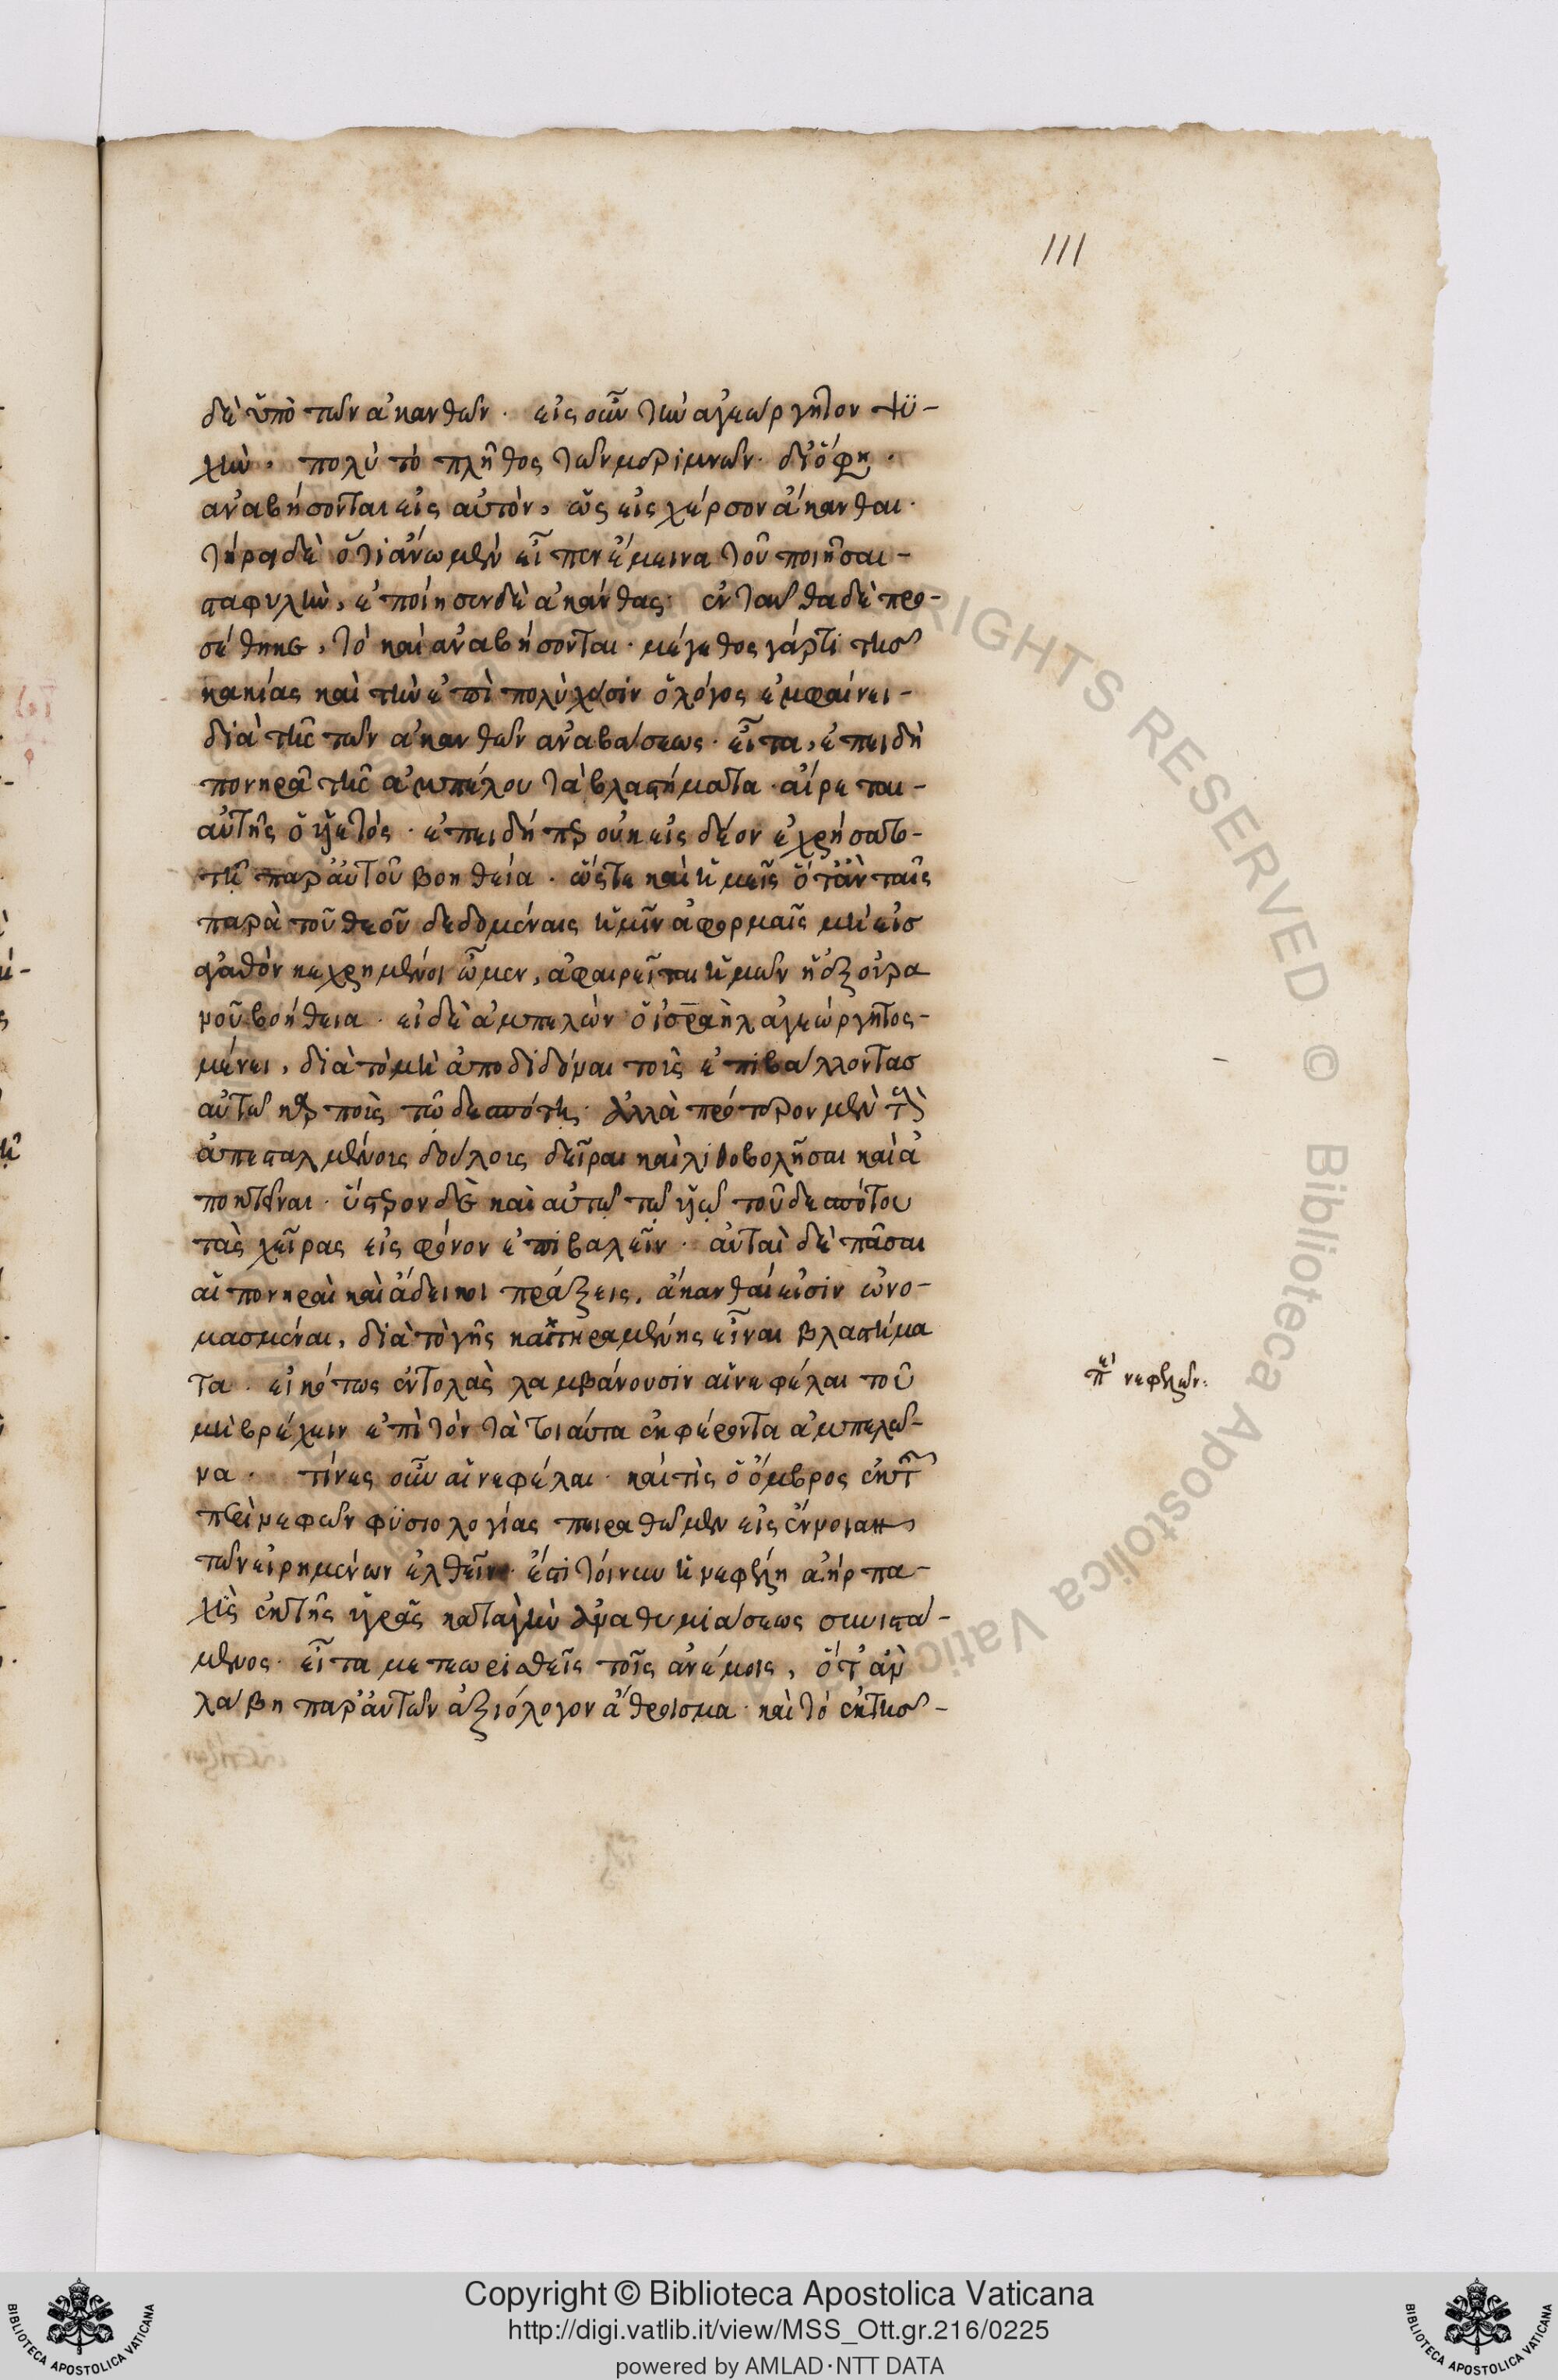 111
δὲ ὑπὸ τῶν ἀκανθῶν. εἰς οὖν τὴν ἀγεώργητον ψϋ-
χὴν, πολὺ τὸ πλῆθος τῶν μεριμνῶν. διὸ φη.
ἀναβήσονται εἰς αὐτὸν, ὡς εἰς χέρσον ἄκανθαι.
τήρει δὲ ὅτι ἄνω μὲν εἶπεν ἔμεινα τοῦ ποιῆσαι-
σταφυλὴν, ἐποίησεν δὲ ἀκάνθας. ἐνταῦθα δὲ προ-
σέθηκε, τὸ καὶ ἀναβήσονται. μέγεθος γάρ τι τῆς
κακίας καὶ τὴν ἐπὶ πολὺ χύσιν ὁ λόγος ἐμφαίνει-
διὰ τῆς τῶν ἀκανθῶν ἀναβάσεως. εἶτα, ἐπειδὴ
πονηρὰ τῆς ἀμπέλου τὰ βλαστήματα. αἴρεται-
αὐτῆς ὁ ὑετός. ἐπειδήπερ οὐκ εἰς δέον ἐχρήσατο-
τῇ παρ' αὐτοῦ βοηθεία. ὥστε καὶ ἡμεῖς ὅταν ταῖς
παρὰ τοῦ θεοῦ δεδομέναις ἡμῖν ἀφορμαῖς μὴ εἰς
ἀγαθὸν κεχρημένοι ὦμεν, ἀφαιρεῖται ἡμῶν ἡ ἐξ οὐρα
νοῦ βοήθεια. εἰ δὲ ἀμπελὼν ὁ ἰσραὴλ ἀγεώργητος-
μένει, διὰ τὸ μὴ ἀποδιδόναι τοὺς ἐπιβάλλοντας
αὐτῷ καρποὺς τῷ δεσπότῃ. ἀλλὰ πρότερον μὲν τοὺς
ἀπεσταλμένοις δούλοις δεῖραι καὶ λιθοβολῆσαι καὶ ἀ
ποκτεῖναι. ὕστερον δὲ καὶ αὐτῷ τῷ υἱῷ τοῦ δεσπότου
τὰς χεῖρας εἰς φόνον ἐπιβαλεῖν. αὗται δὲ πᾶσαι
αἱ πονηραὶ καὶ ἄδεικοι πράξεις, ἄκανθαί εἰσιν ὠνο-
μασμέναι, διὰ τὸ γῆς κατηραμένης εἶναι βλαστήμα
τα. εἰκότως ἐντολὰς λαμβάνουσιν αἱ νεφέλαι τοῦ
μὴ βρέχειν ἐπὶ τὸν τὰ τοιαῦτα ἐκφέροντα ἀμπελῶ-
να. τίνες οὖν αἱ νεφέλαι. καὶ τίς ὁ ὄμβρος ἐκ τῆς
περὶ νεφῶν φϋσιολογίας πειραθῶμεν εἰς ἔννοιαν
τῶν εἰρημένων ἐλθεῖν. ἔστι τοίνυν ἡ νεφέλη ἀὴρ πα-
χὺς ἐκ τῆς ὑγρᾶς κατὰ γῆν ἀναθυμιάσεως συνιστά-
μενος. εἶτα μετεωρισθεὶς τοῖς ἀνέμοις, ὅταν
λάβη παρ' αὐτῶν ἀξιόλογον ἄθροισμα. καὶ τὸ ἐκ τῆς-
περὶ νεφελῶν:
COPYRIGHTS RESERVED © Biblioteca Apostolica Vaticana
Copyright © Biblioteca Apostolica Vaticana
http://digi.vatlib.it/view/MSS_Ott.gr.216/0225
powered by AMLAD·NTT DATA
BIBLIOTECA APOSTOLICA VATICANA
BIBLIOTECA APOSTOLICA VATICANA